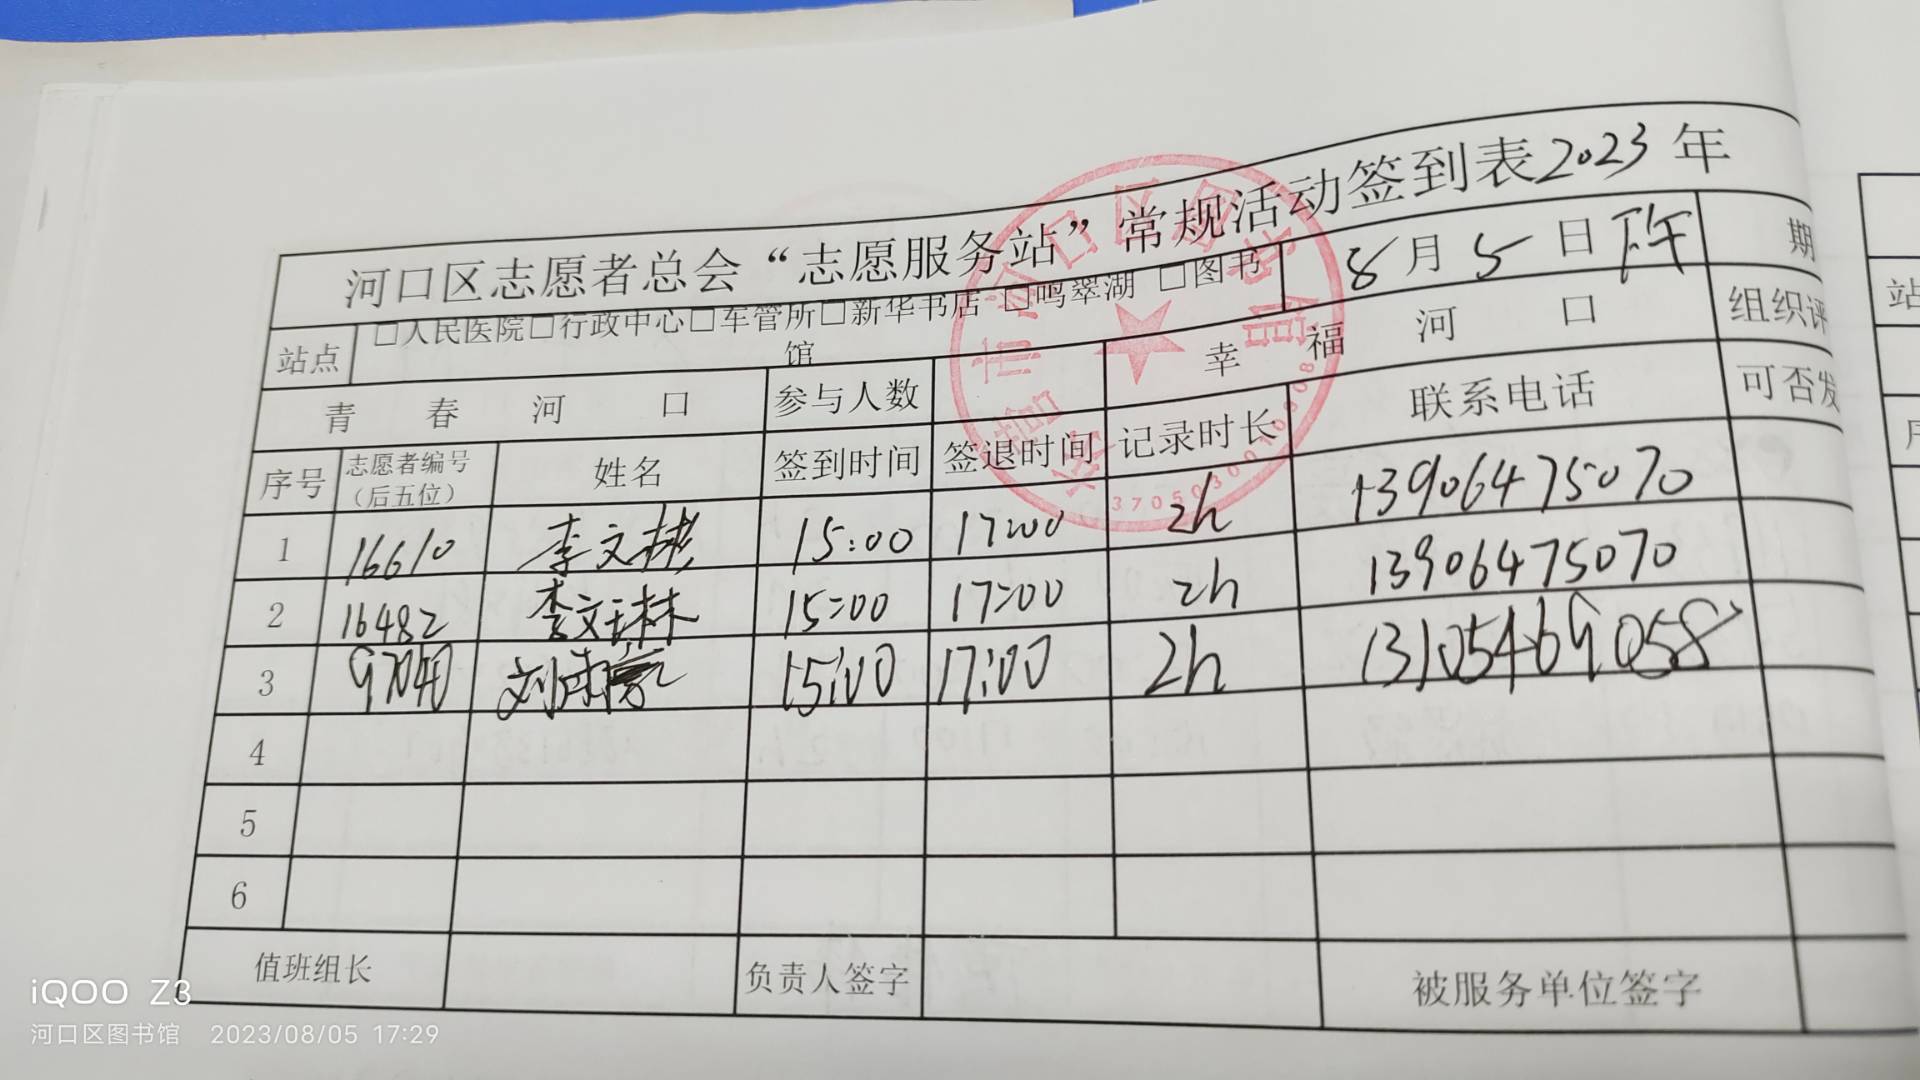 河口区志愿者总会“志愿服务站”常规活动签到表2023年
站点 □人民医院□行政中心□车管所□新华书店 □鸣翠湖 □图书馆 8月5日下午 期
青春河口 参与人数 幸福河口 组织评
序号 志愿者编号（后五位） 姓名 签到时间 签退时间 记录时长 联系电话 可否发
1 16610 李文彬 15:00 17:00 2h 13906475070
2 16482 李文琳 15:00 17:00 2h 13906475070
3 97040 刘 15:00 17:00 2h 13105469058
4
5
6
值班组长 负责人签字 被服务单位签字
站
市河口区图书馆
iQOO Z3
河口区图书馆 2023/08/05 17:29